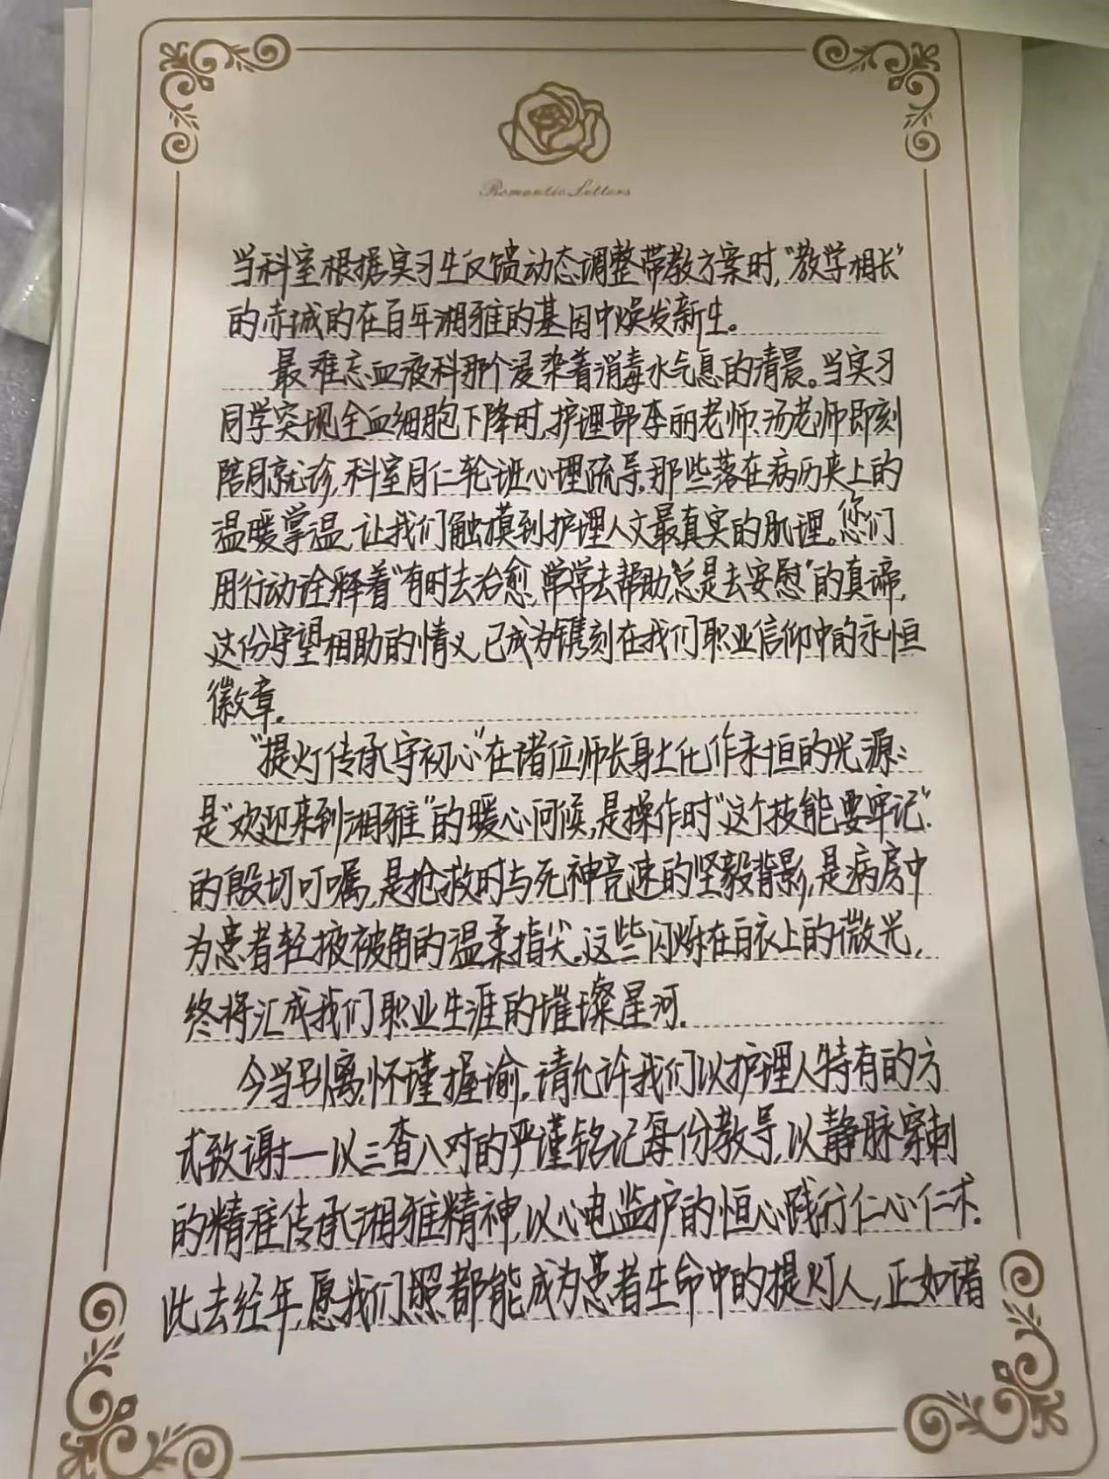 Romantic Letters
当科室根据实习生反馈动态调整带教方案时,“教学相长”
的赤城的在百年湘雅的基因中焕发新生。
最难忘血液科那个浸染着消毒水气息的清晨。当实习
同学突现全血细胞下降时,护理部李丽老师.汤老师即刻
陪同就诊,科室同仁轮班心理疏导,那些落在病历夹上的
温暖掌温,让我们触摸到护理人文最真实的肌理。您们
用行动诠释着“有时去治愈,常常去帮助,总是去安慰”的真谛,
这份守望相助的情义,已成为镌刻在我们职业信仰中的永恒
徽章。
“提灯传承守初心”在诸位师长身上化作永恒的光源:
是“欢迎来到湘雅”的暖心问候,是操作时“这个技能要牢记”
的殷切叮嘱,是抢救时与死神竞速的坚毅背影,是病房中
为患者轻掖被角的温柔指尖。这些闪烁在白衣上的微光,
终将汇成我们职业生涯的璀璨星河。
今当别离,怀瑾握谕。请允许我们以护理人特有的方
式致谢—以三查八对的严谨铭记每份教导,以静脉穿刺
的精准传承湘雅精神,以心电监护的恒心践行仁心仁术.
此去经年,愿我们照都能成为患者生命中的提灯人,正如诸